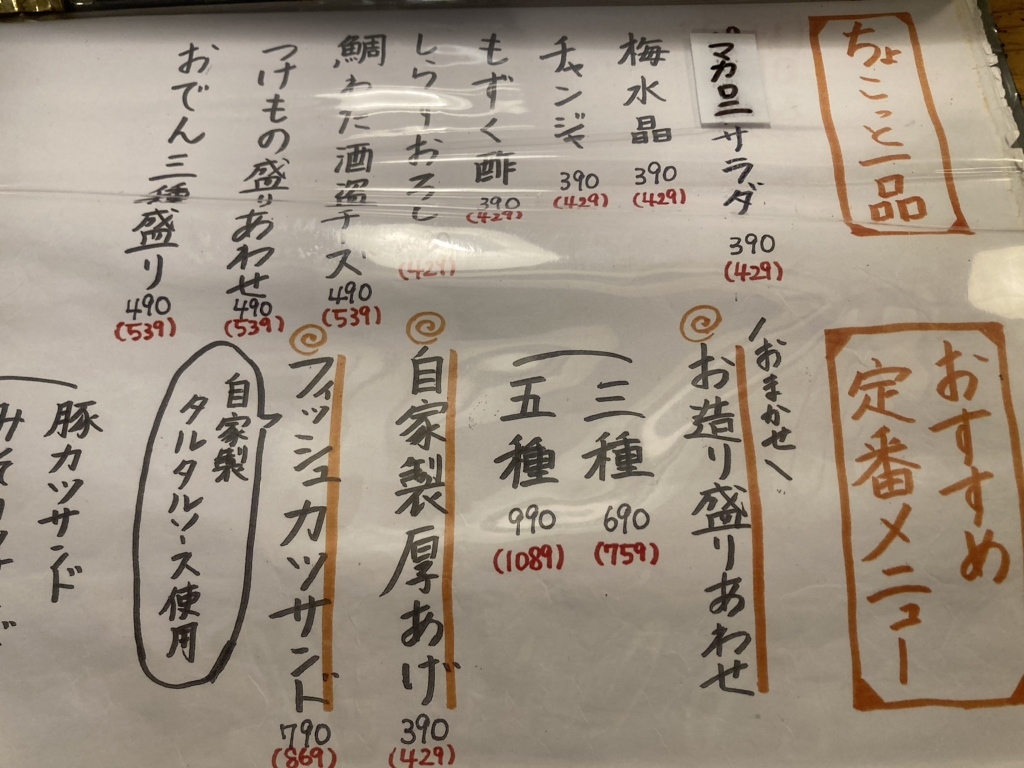 ちょこっと一品
マカロニサラダ
390
(429)
梅水晶
390
(429)
チャンジャ
390
(429)
もずく酢
390
(429)
しらすおろし
(429)
鯛わた酒盗チーズ
490
(539)
つけもの盛りあわせ
490
(539)
おでん三種盛り
490
(539)
おすすめ
定番メニュー
おまかせ
お造り盛りあわせ
三種
690
(759)
五種
990
(1089)
自家製厚あげ
390
(429)
フィッシュカツサンド
790
(869)
自家製
タルタルソース使用
豚カツサンド